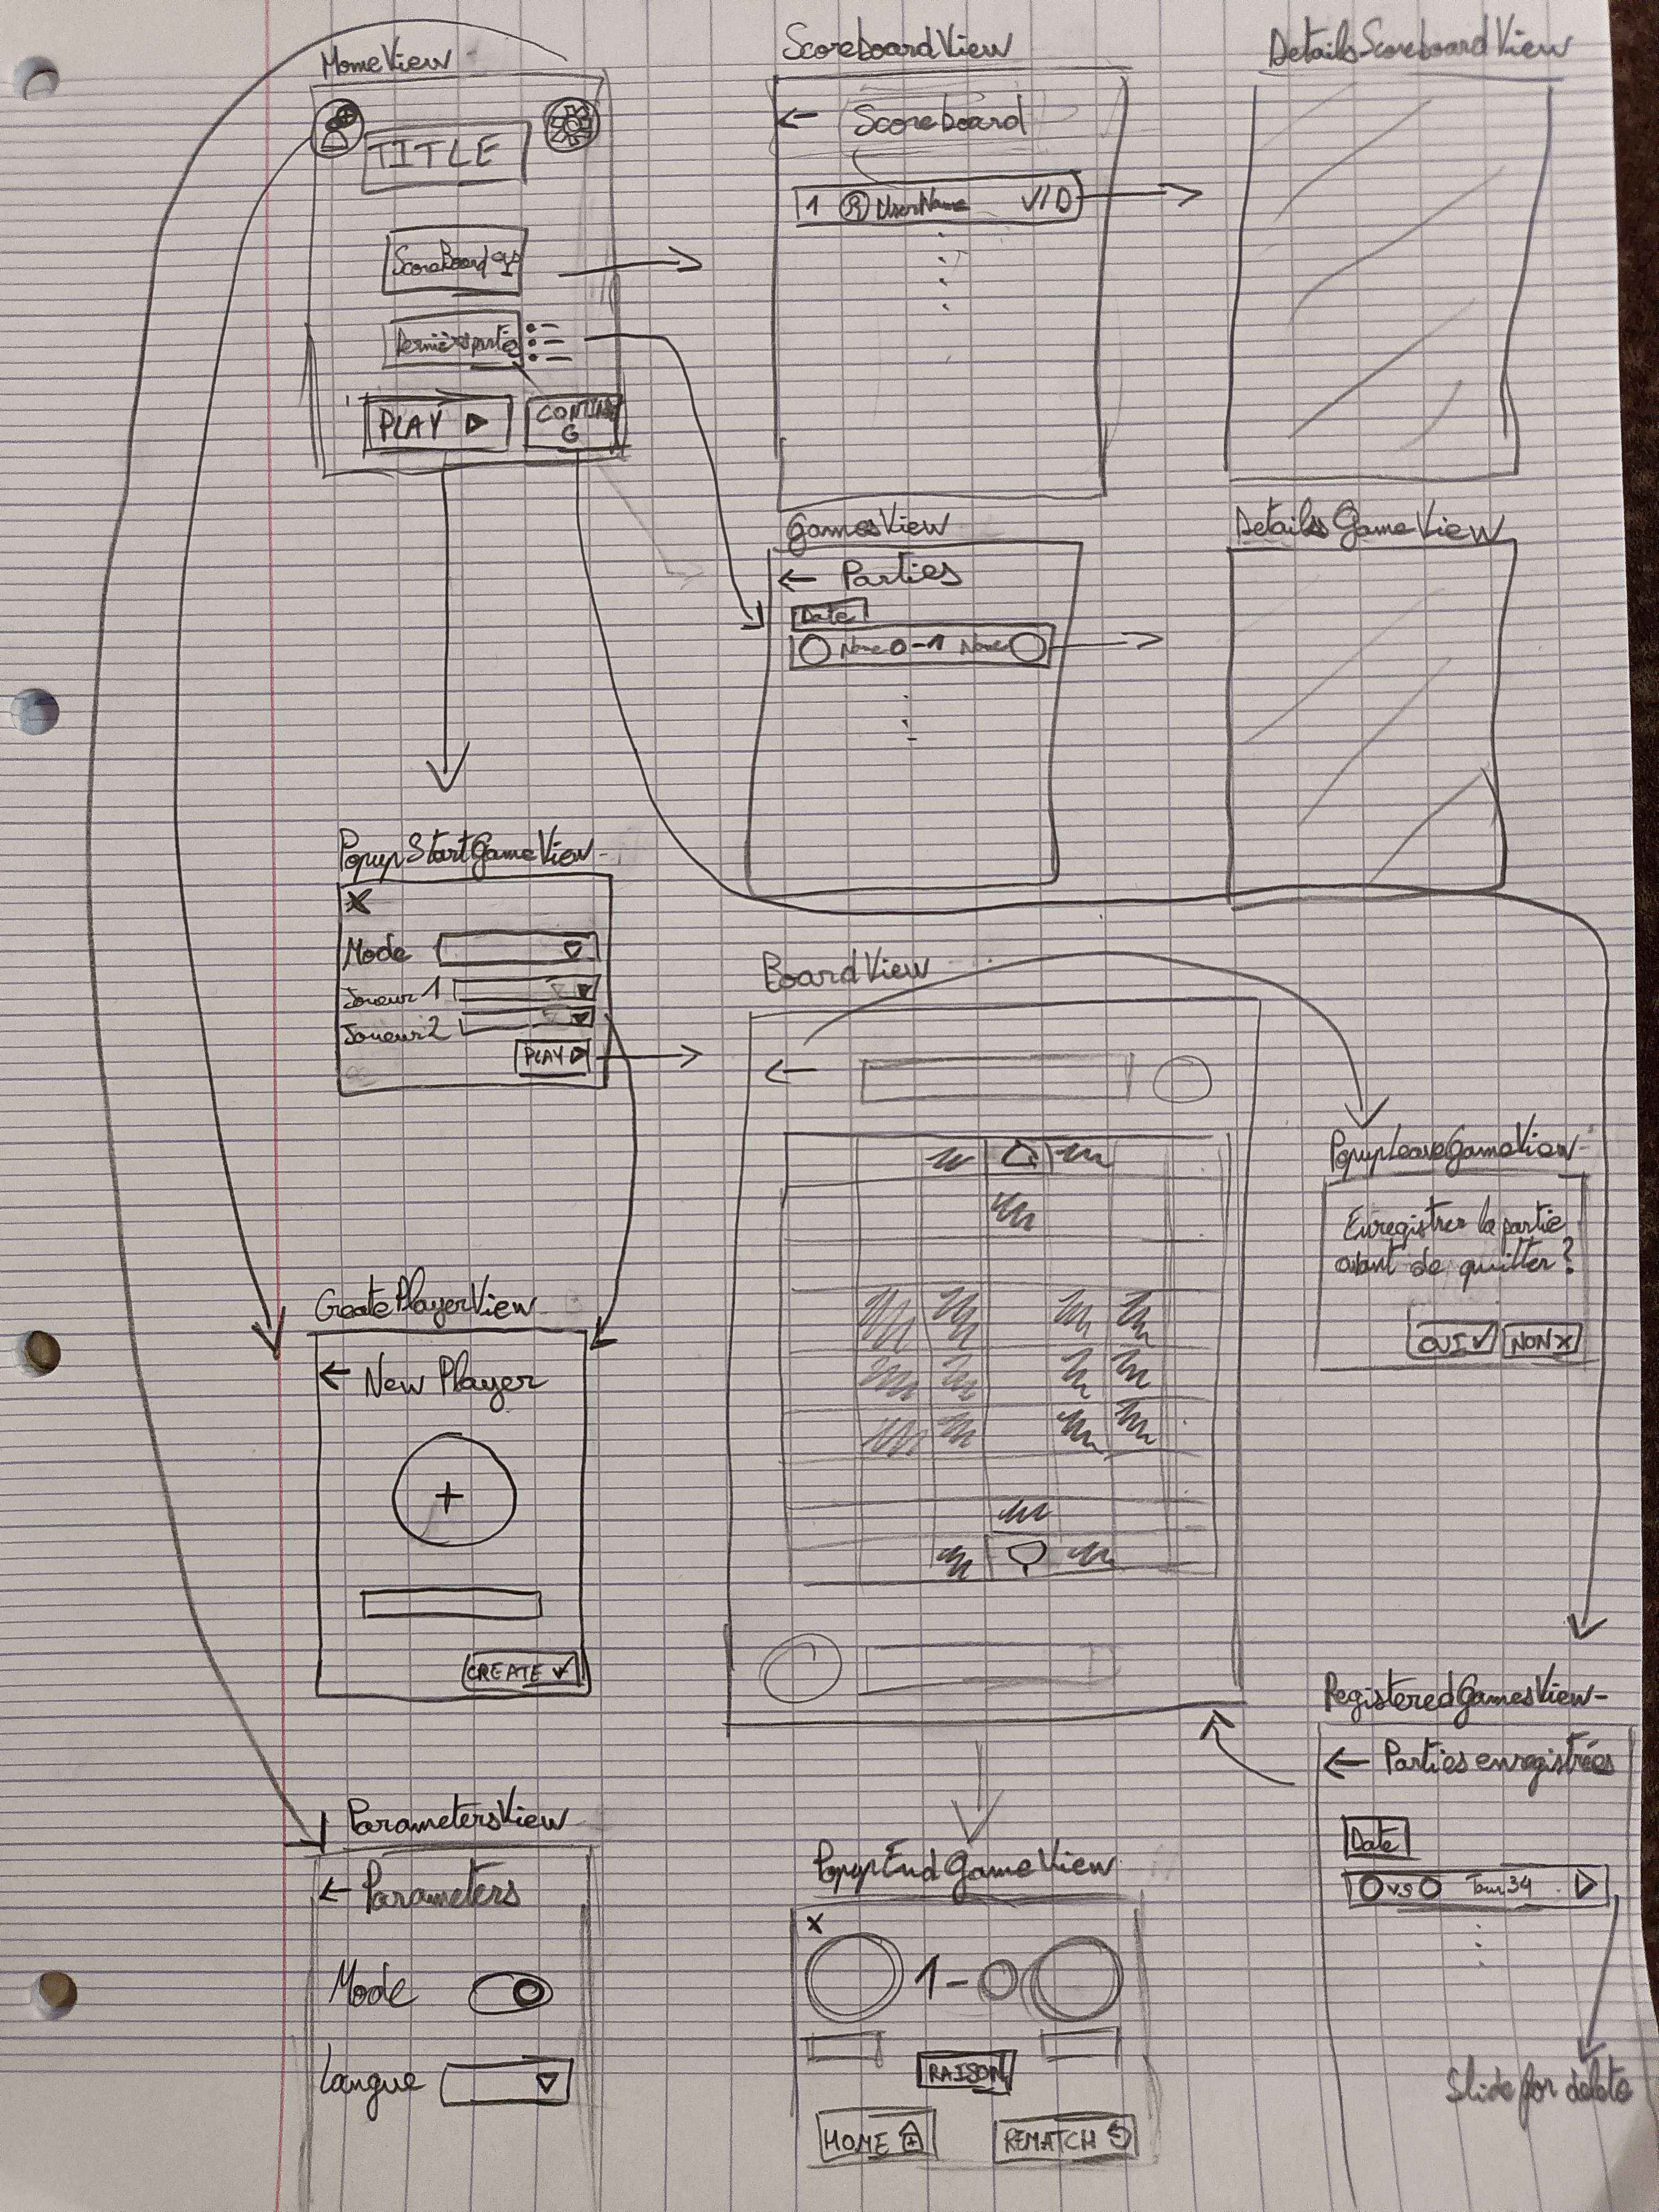 HomeView
TITLE
ScoreBoard
Dernières parties
PLAY
ScoreboardView
Scoreboard
1 UserName V/D
DetailsScoreboardView
GamesView
Parties
Date
Name 0-1 Name
DetailsGameView
PopupStartGameView
X
Mode
Joueur 1
Joueur 2
PLAY
BoardView
PopupLeaveGameView
Enregistrer la partie
avant de quitter?
OUI NON X
CreatePlayerView
New Player
+
CREATE
RegisteredGamesView
Parties enregistrées
Date
vs Tour 34
Slide for delete
ParametersView
Parameters
Mode
Langue
PopupEndGameView
X
1-0
RAISON
HOME REMATCH